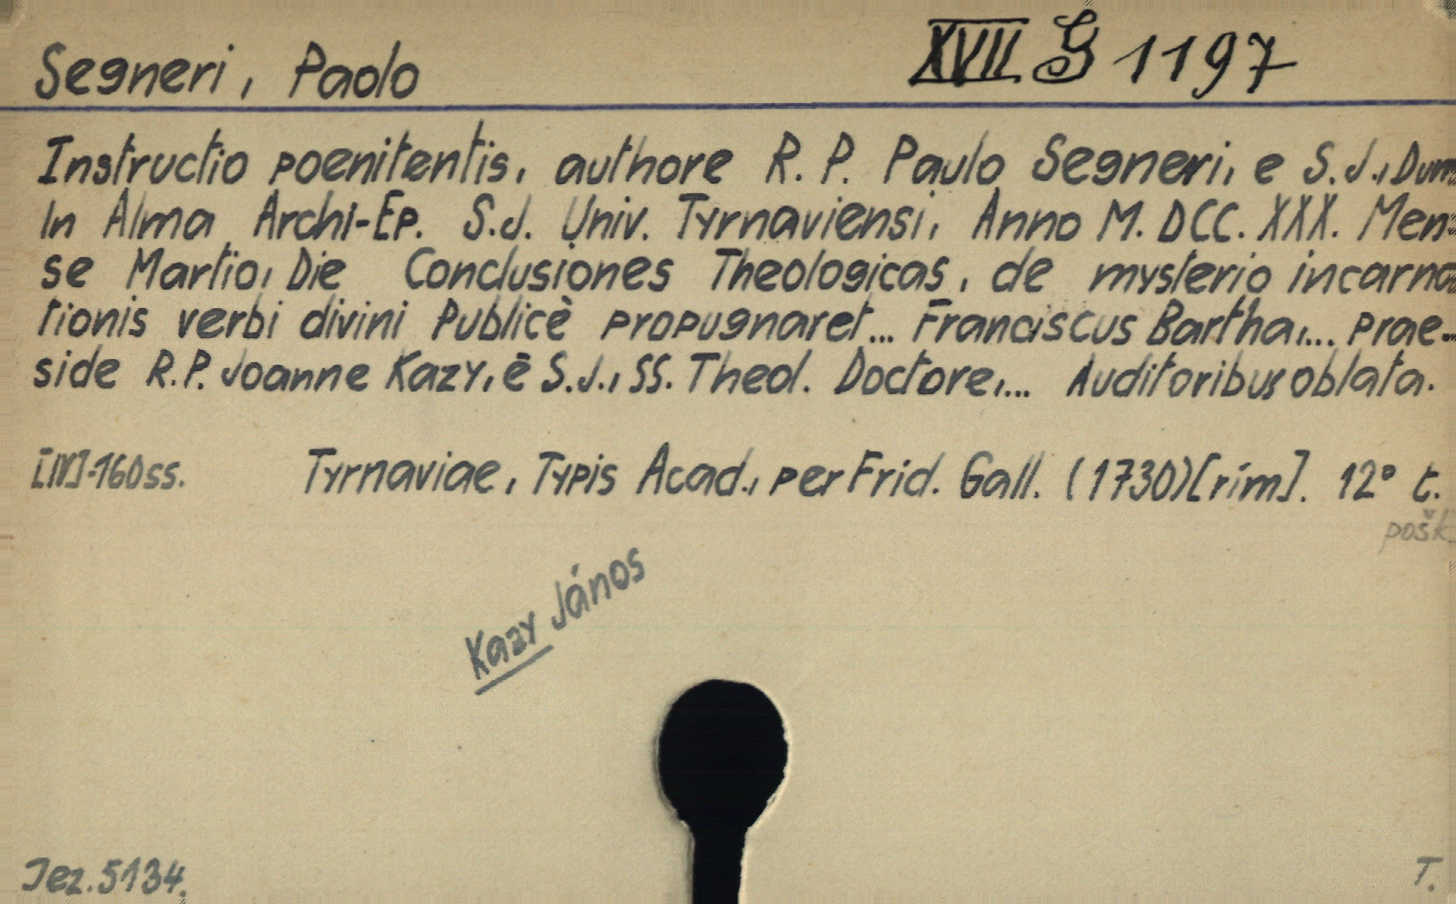 Segneri, Paolo
XVII G 1197
Instructio poenitentis, authore R. P. Paulo Segneri, e S. J., Dum
In Alma Archi-Ep. S.J. Univ. Tyrnaviensi, Anno M. DCC. XXX. Men-
se Martio, Die Conclusiones Theologicas, de mysterio incarna
tionis verbi divini Publicè propugnaret... Franciscus Bartha,... prae-
side R.P. Joanne Kazy, ē S.J., SS. Theol. Doctore,... Auditoribus oblata.
[IV]-160 ss. Tyrnaviae, Typis Acad., per Frid. Gall. (1730)[rím]. 12° t.
pošk.
Kazy János
Jez. 5134.
T.